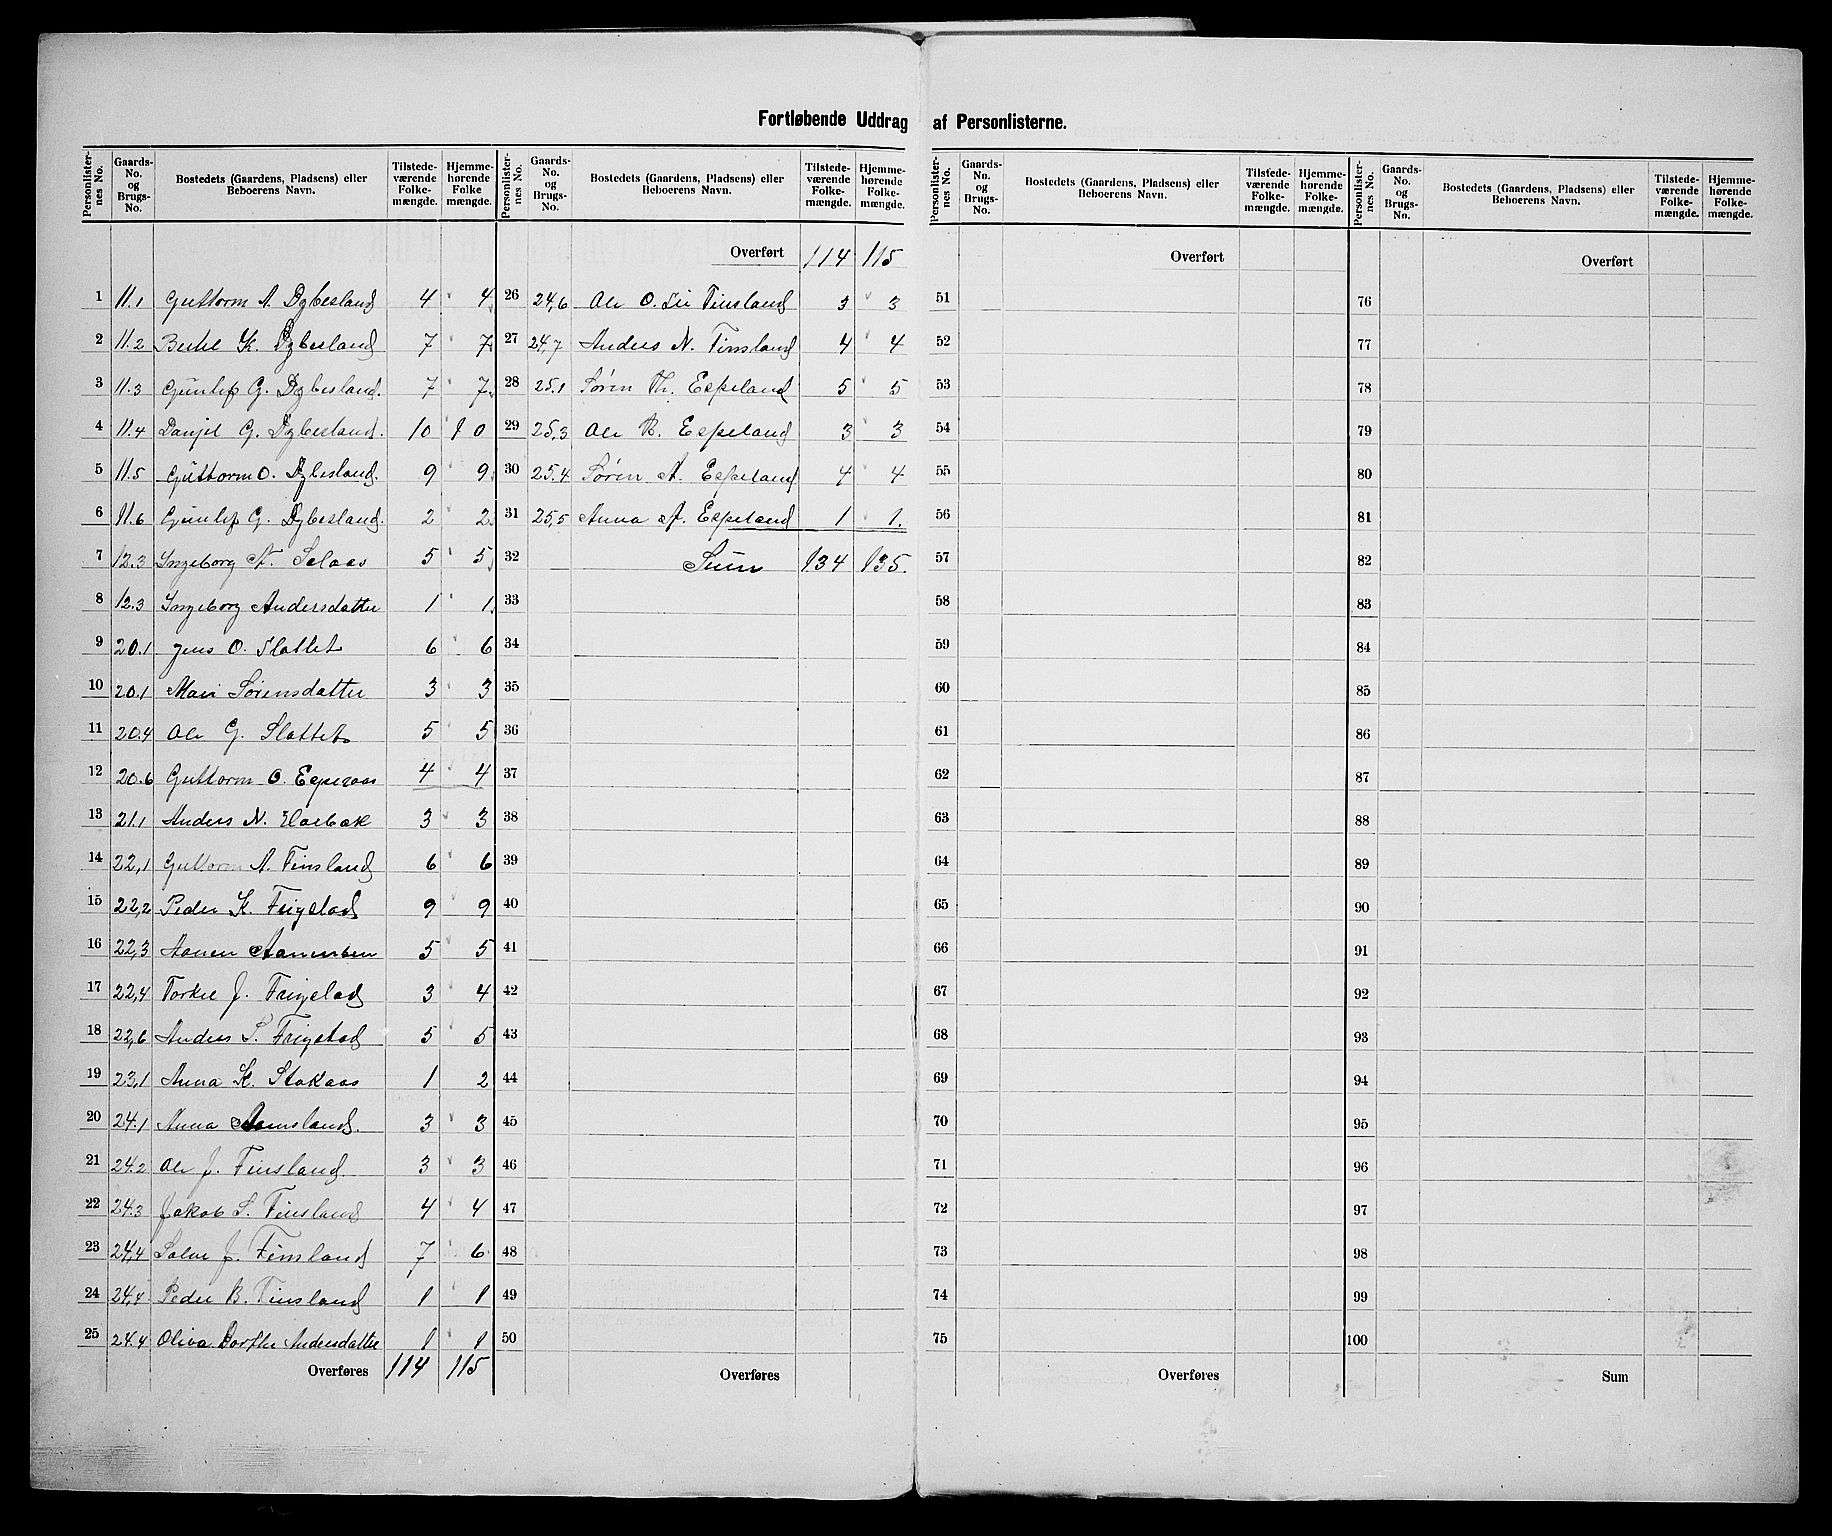 Fortløbende Uddrag af Personlisterne.
Personlister-nes No. Gaards-No. og Brugs-No. Bostedets (Gaardens, Pladsens) eller Beboerens Navn. Tilstede-værende Folke-mængde. Hjemme-hørende Folke mængde.
1 11.1 Guttorm A. Dybesland 4 4
2 11.2 Bertel K. Dybesland 7 7
3 11.3 Gunlef G. Dybesland. 7 7
4 11.4 Danjel G. Dybesland. 10 10
5 11.5 Guttorm O. Dybesland. 9 9
6 11.6 Gunlef G. Dybesland. 2 2
7 12.3 Ingeborg A. Selaas 5 5
8 12.3 Ingeborg Andersdatter 1 1
9 20.1 Jens O. Slottet 6 6
10 20.1 Mari Sørensdatter 3 3
11 20.4 Ole G. Slottet 5 5
12 20.6 Guttorm O. Esperaas 4 4
13 21.1 Anders N. 3 3
14 22,1 Guttorm A. Finsland 6 6
15 22,2 Peder K. Frigstad 9 9
16 22,3 Aanen Aanensen 5 5
17 22,4 Torkel J. Frigstad 3 4
18 22,6 Anders S. Frigstad 5 5
19 23,1 Anna K. Stakaas 1 2
20 24.1 Anna 3 3
21 24.2 Ole J. Finsland 3 3
22 24.3 Jakob S. Finsland 4 4
23 24,4 Salve J. Finsland 7 6
24 24,4 Peder B. Finsland 1 1
25 24.4 Oliva Dorthe Andersdatter 1 1
Overføres 114 115
Personlister-nes No. Gaards-No. og Brugs-No. Bostedets (Gaardens, Pladsens) eller Beboerens Navn. Tilstede-værende Folke-mængde. Hjemme-hørende Folke-mængde.
Overført 114 115
26 24,6 Ole O. Li Finsland 3 3
27 24,7 Anders N. Finsland 4 4
28 25.1 Søren Th. Espeland 5 5
29 25,3 Ole B. Espeland 3 3
30 25.4 Søren A. Espeland 4 4
31 25,5 Anna A. Espeland 1 1.
32 Sum 134 135.
33
34
35
36
37
38
39
40
41
42
43
44
45
46
47
48
49
50
Overføres
Personlister-nes No. Gaards-No. og Brugs-No. Bostedets (Gaardens, Pladsens) eller Beboerens Navn. Tilstede-værende Folke-mængde. Hjemme-hørende Folke-mængde.
Overført
51
52
53
54
55
56
57
58
59
60
61
62
63
64
65
66
67
68
69
70
71
72
73
74
75
Overføres
Personlister-nes No. Gaards-No. og Brugs-No. Bostedets (Gaardens, Pladsens) eller Beboerens Navn. Tilstede-værende Folke-mængde. Hjemme-hørende Folke-mængde.
Overført
76
77
78
79
80
81
82
83
84
85
86
87
88
89
90
91
92
93
94
95
96
97
98
99
100
Sum